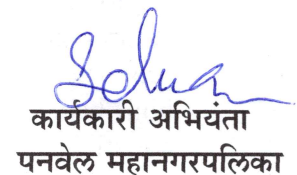 कार्यकारी अभियंता
पनवेल महानगरपालिका